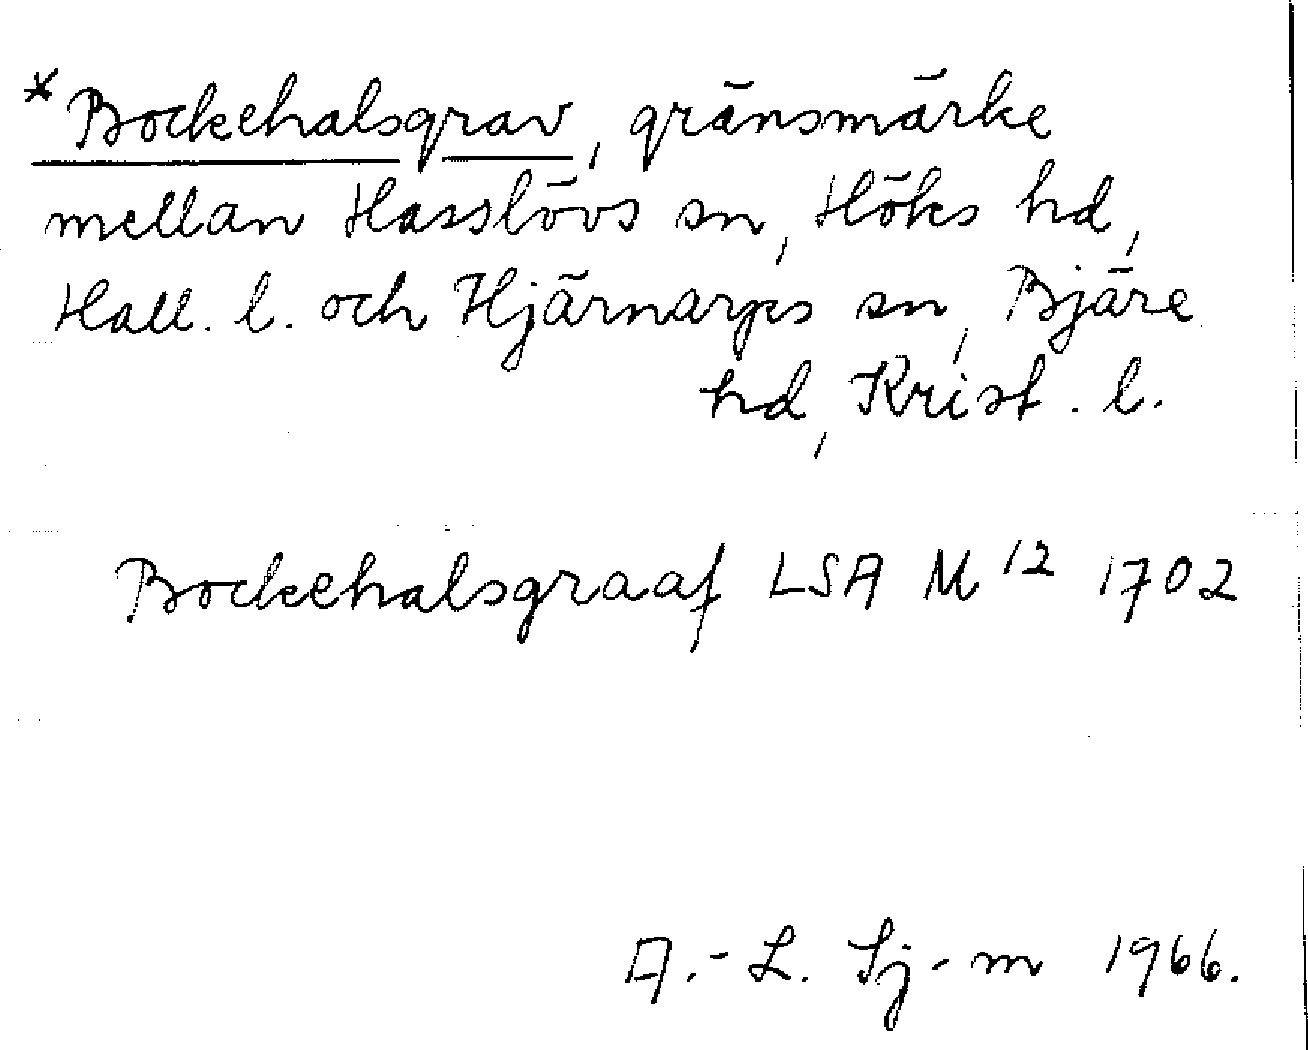 * Bockehalsgrav, gränsmärke
mellan Hasslövs sn, Höks hd,
Hall. l. och Hjärnarps sn, Bjäre
hd, Krist. l.
Bockehalsgraaf LSA M 12 1702
A.-L. Sj-m 1966.